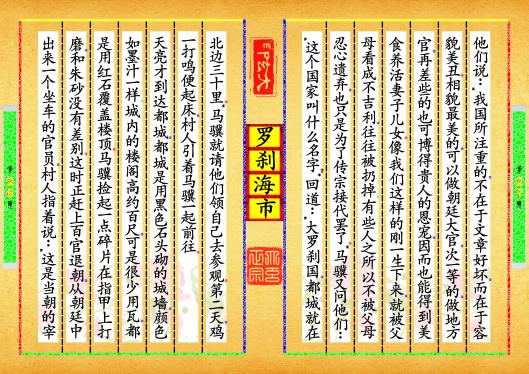 他们说：我国所注重的不在于文章好坏而在于容
貌美丑相貌最美的可以做朝廷大官次一等的做地方
官再差些的也可博得贵人的恩宠因而也能得到美
食养活妻子儿女像我们这样的刚一生下来就被父
母看成不吉利往往被扔掉有些人之所以不被父母
忍心遗弃也只是为了传宗接代罢了马骥又问他们：
这个国家叫什么名字，回道：大罗刹国都城就在
罗刹海市
北边三十里马骥就请他们领自己去参观第二天鸡
一打鸣便起床村人引着马骥一起前往
天亮才到达都城都城是用黑色石头砌的城墙颜色
如墨汁一样城内的楼阁高约百尺可是很少用瓦都
是用红石覆盖楼顶马骥捡起一点碎片在指甲上打
磨和朱砂没有差别这时正赶上百官退朝从朝廷中
出来一个坐车的官员村人指着说：这是当朝的宰